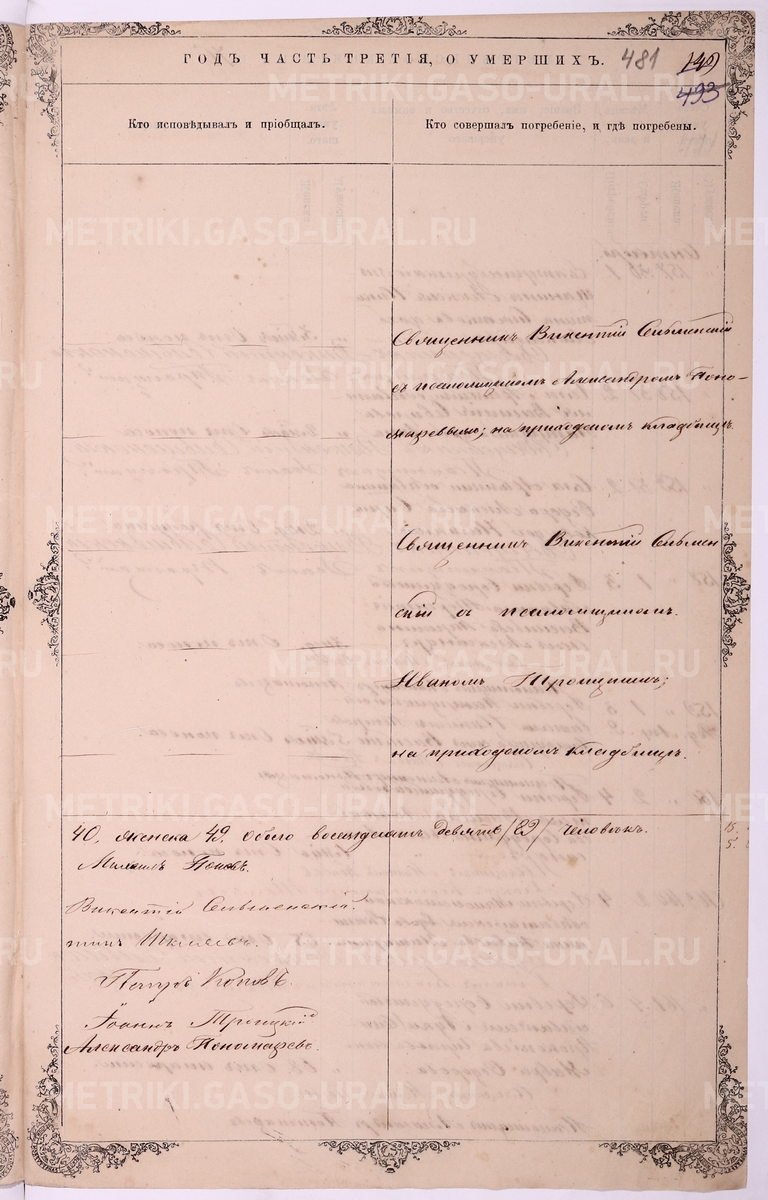 ГОДЪ ЧАСТЬ ТРЕТІЯ, О УМЕРШИХЪ. 481
493
Кто исповѣдывалъ и пріобщалъ.
Кто совершалъ погребеніе, и гдѣ погребены.
Священникъ Викентій
съ псаломщикомъ Александромъ Поно-
маревымъ; на приходскомъ кладбищѣ.
Священникъ Викентій
скій съ псаломщикомъ
Иваномъ
на приходскомъ кладбищѣ.
40, женска 49, обоего восемьдесятъ девять /89/ человѣкъ.
Михаилъ Поповъ.
Викентій
Петръ Поповъ.
Іоаннъ Троицкій
Александръ Пономаревъ.
METRIKI.GASO-URAL.RU